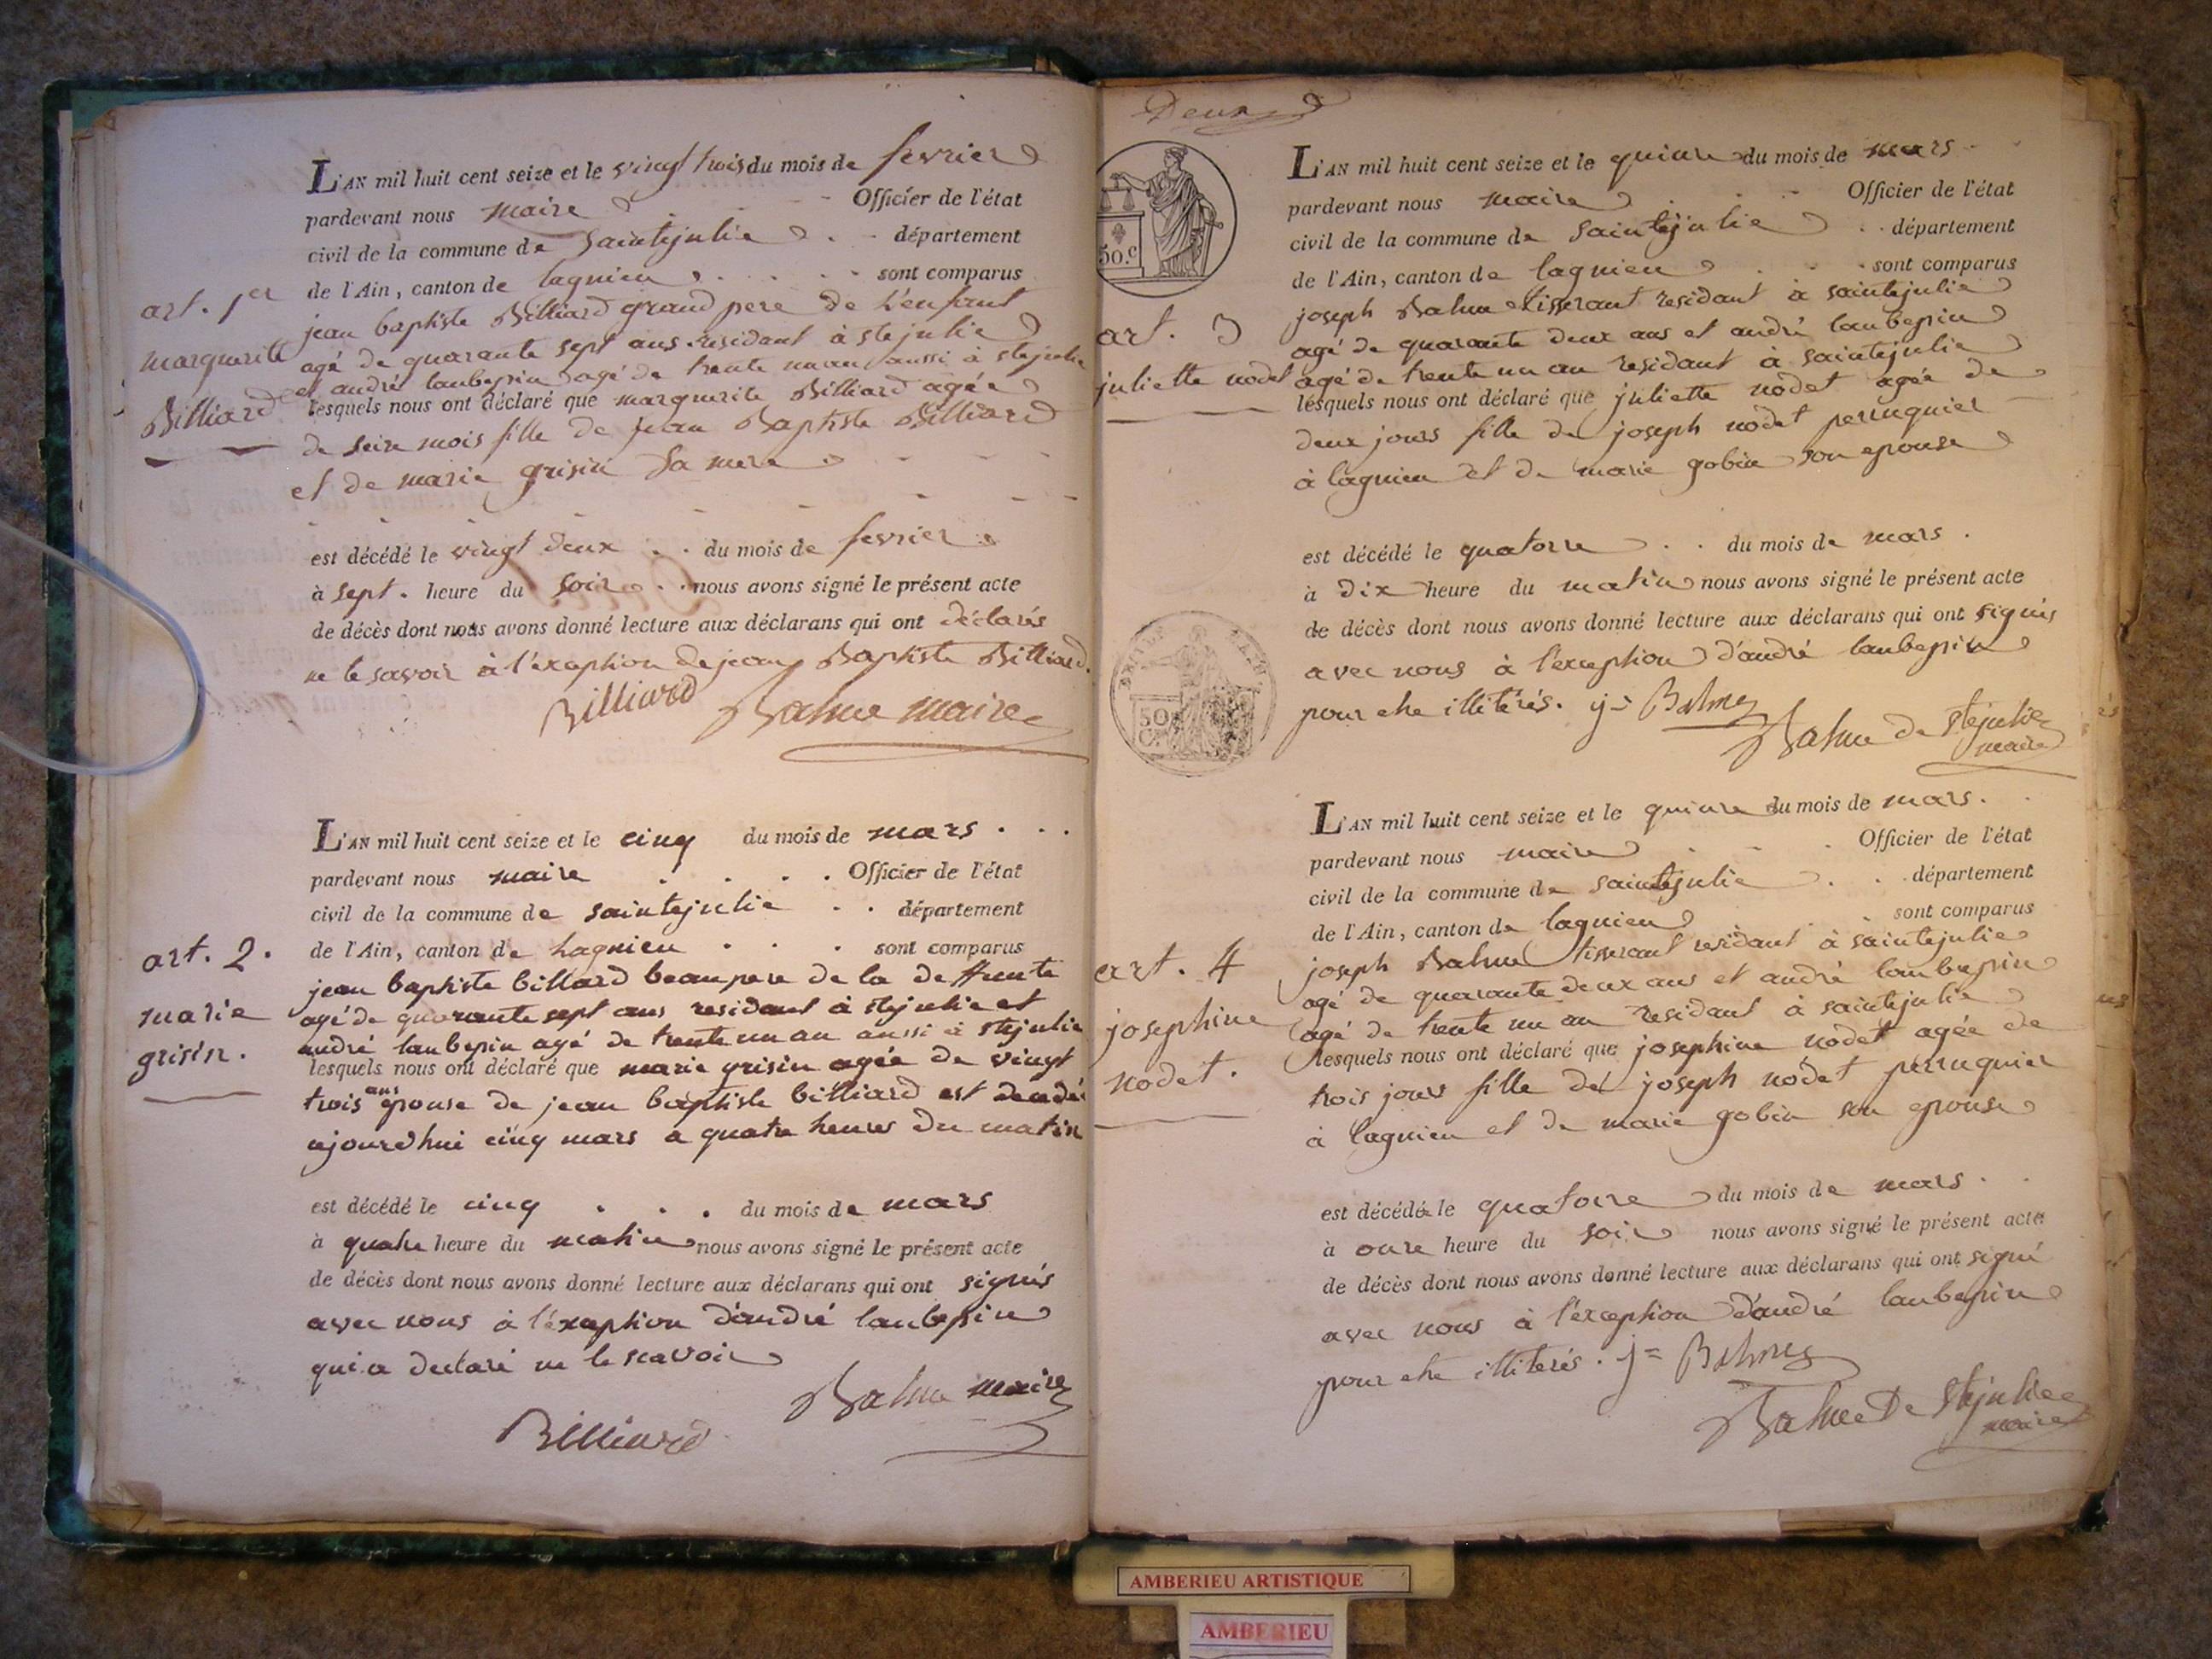 L'AN mil huit cent seize et le vingt trois du mois de fevrier
pardevant nous maire Officier de l'état
civil de la commune de Saintejulie département
de l'Ain, canton de lagnieu sont comparus
art. 1er
jean baptiste Billiard grand pere de l'enfant
agé de quarante sept ans residant à ste julie
et andré laubepin agé de trente un an aussi à ste julie
marguerite
Billiard
lesquels nous ont déclaré que marguerite Billiard agée
de seize mois fille de jean Baptiste Billiard
et de marie grisin sa mere
est décédé le vingt deux du mois de fevrier
à sept heure du soir nous avons signé le présent acte
de décès dont nous avons donné lecture aux déclarans qui ont déclarés
ne le savoir à l'exception de jean Baptiste Billiard.
Billiard Balme maire
L'AN mil huit cent seize et le cinq du mois de mars
pardevant nous maire Officier de l'état
civil de la commune de saintejulie département
art. 2.
de l'Ain, canton de Lagnieu sont comparus
jean baptiste billard beaupere de la deffunte
marie
agé de quarante sept ans residant à ste julie et
andré laubepin agé de trente un an aussi à ste julie
grisin.
lesquels nous ont déclaré que marie grisin agée de vingt
trois ans epouse de jean baptiste billiard est decedé
ajourdhui cinq mars a quatre heures du matin
est décédé le cinq du mois de mars
à quatre heure du matin nous avons signé le présent acte
de décès dont nous avons donné lecture aux déclarans qui ont signés
avec nous à l'exception d'andré laubepin
qui a declaré ne le scavoir
Balme maire
Billiard
Deux
50.c
L'AN mil huit cent seize et le quinze du mois de mars
pardevant nous maire Officier de l'état
civil de la commune de saintejulie département
de l'Ain, canton de lagnieu sont comparus
art. 3
joseph Balme tisserant residant à saintejulie
agé de quarante deux ans et andré laubepin
juliette nodet
agé de trente un an residant à saintejulie
lesquels nous ont déclaré que juliette nodet agée de
deux jours fille de joseph nodet perruquier
à lagnieu et de marie gobin son epouse
est décédé le quatorze du mois de mars
à dix heure du matin nous avons signé le présent acte
de décès dont nous avons donné lecture aux déclarans qui ont signés
avec nous à l'exception d'andré laubepin
pour etre illitérés. j= Balme
Balme de ste julie
maire
50
C.
L'AN mil huit cent seize et le quinze du mois de mars.
pardevant nous maire Officier de l'état
civil de la commune de saintejulie département
de l'Ain, canton de lagnieu sont comparus
art. 4
joseph Balme tisserant residant à saintejulie
agé de quarante deux ans et andré laubepin
josephine
agé de trente un an residant à saintejulie
lesquels nous ont déclaré que josephine nodet agée de
nodet.
trois jours fille de joseph nodet perruquier
à lagnieu et de marie gobin son epouse
est décédé le quatorze du mois de mars
à onze heure du soir nous avons signé le présent acte
de décès dont nous avons donné lecture aux déclarans qui ont signé
avec nous à l'exception d'andré laubepin
pour etre illiterés. j= Balme
Balme De ste julie
maire
AMBERIEU ARTISTIQUE
AMBERIEU